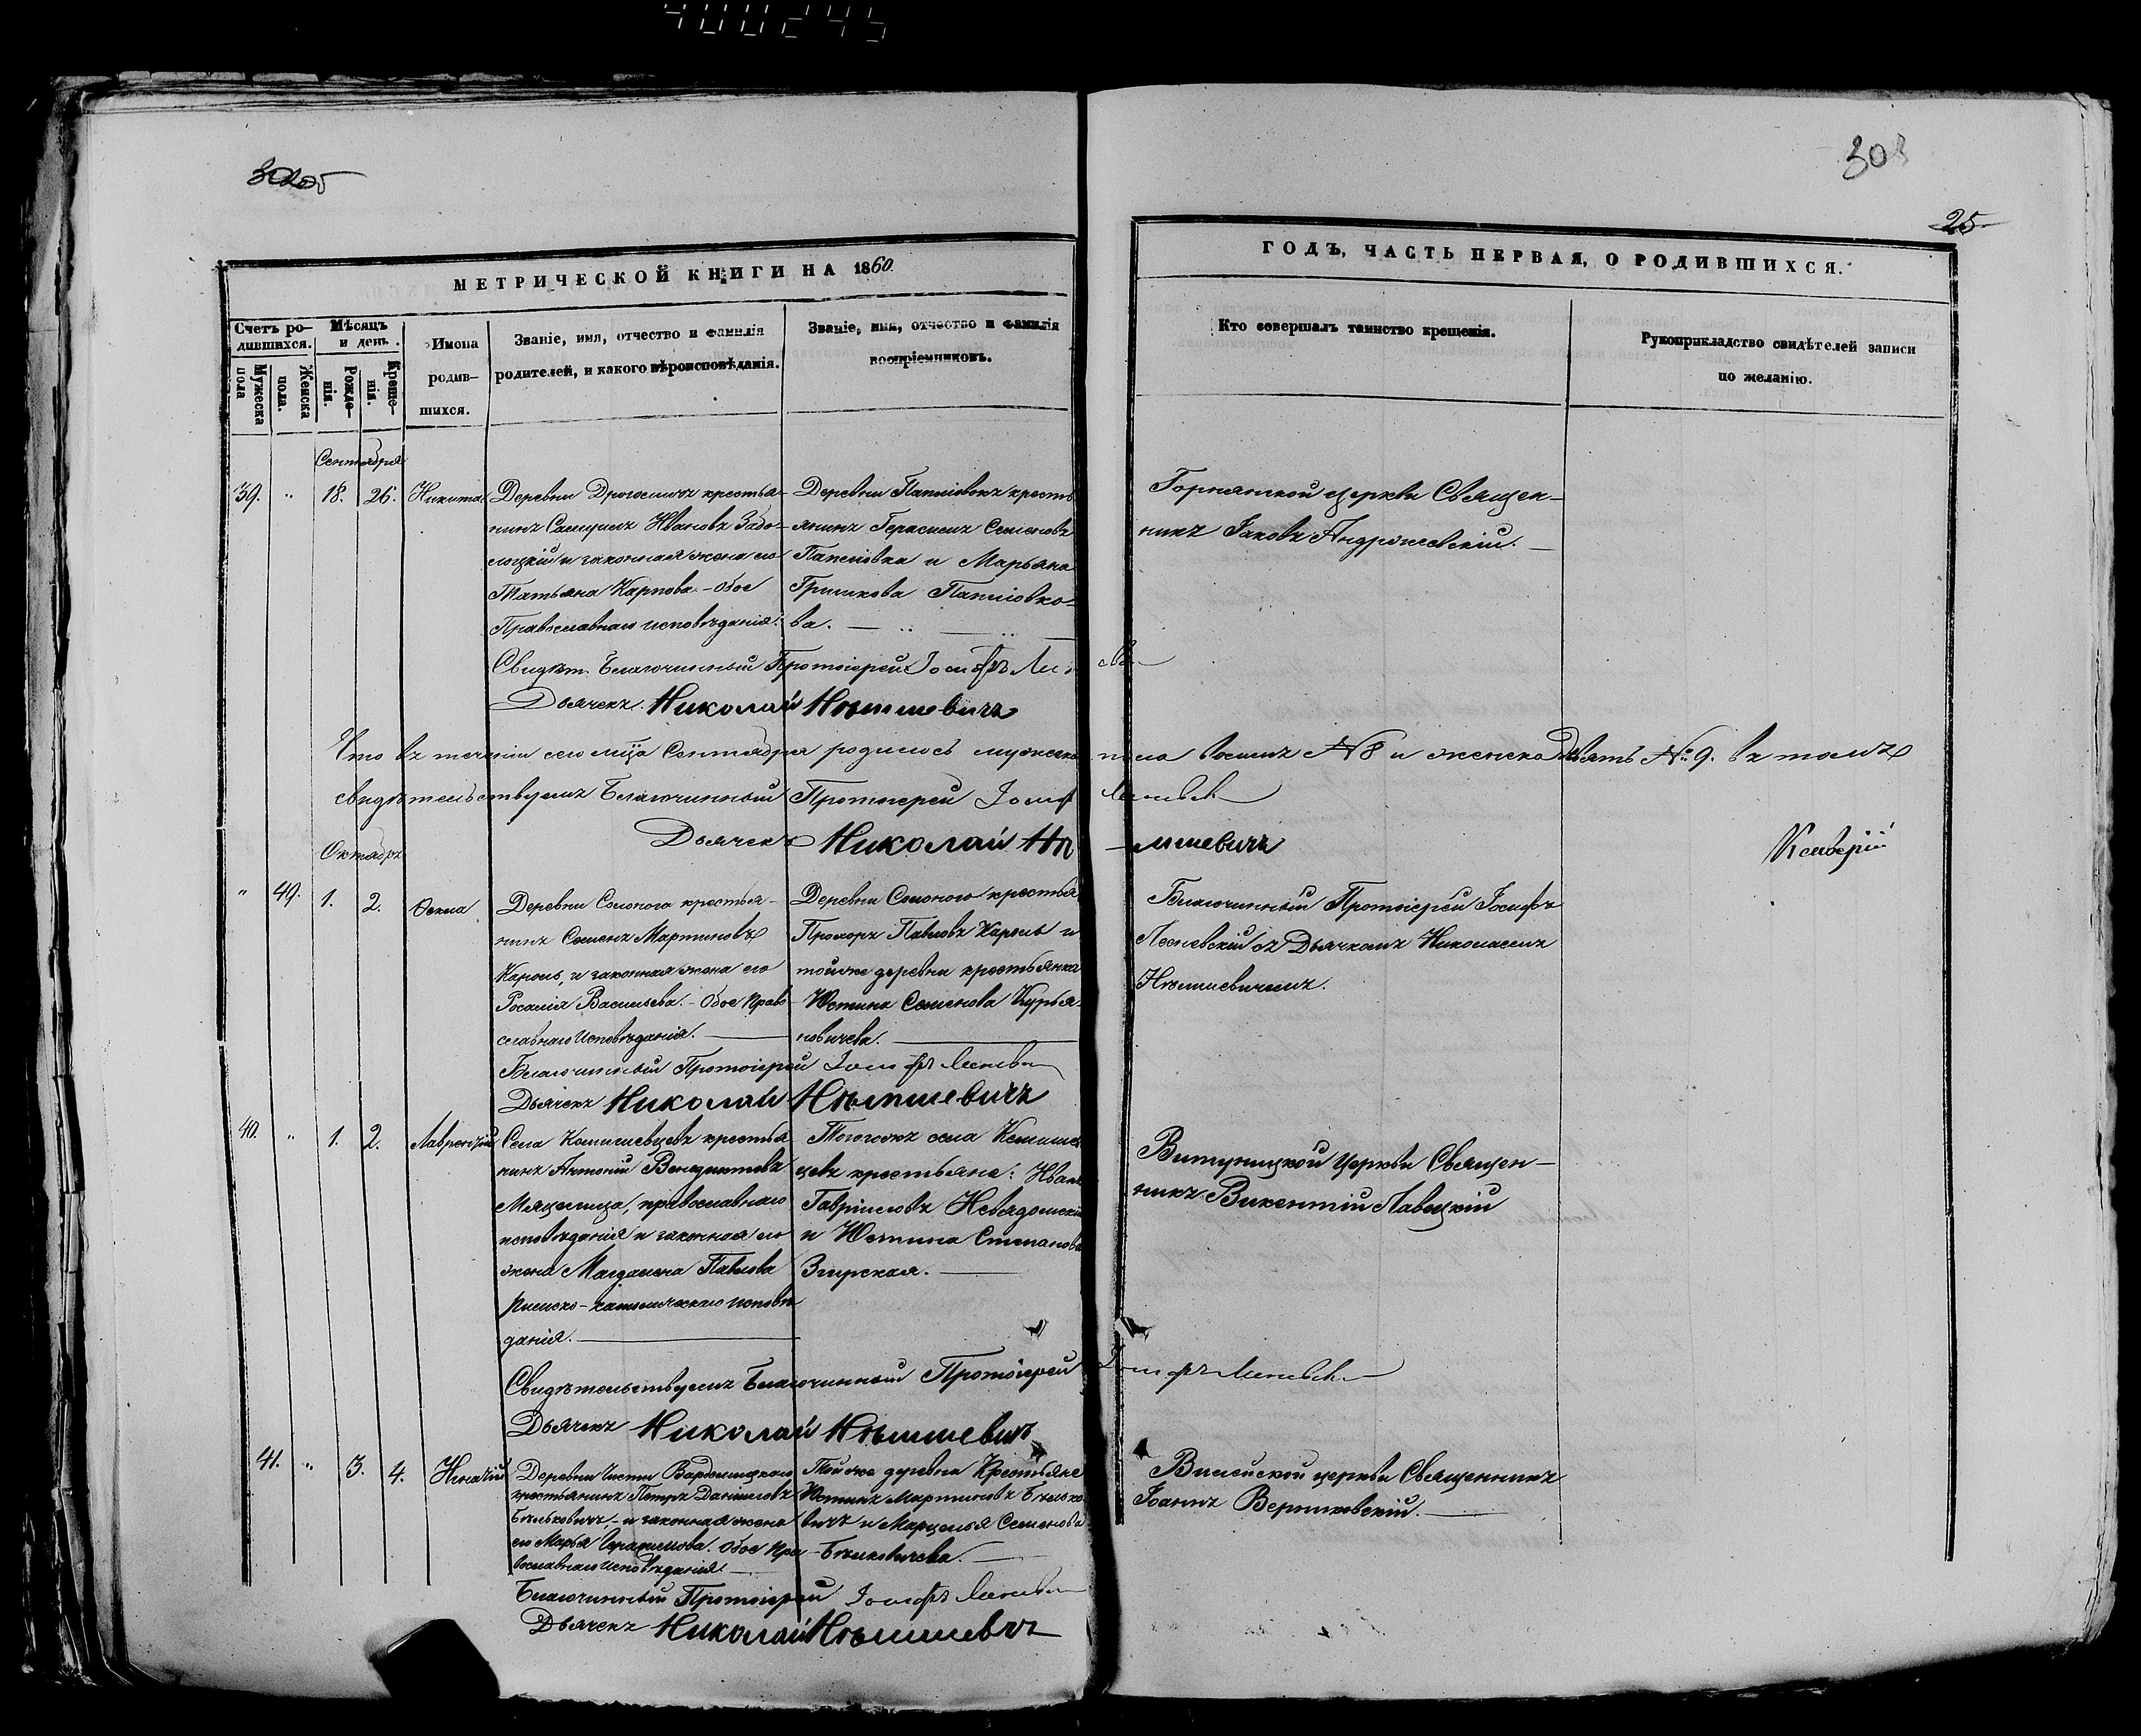 400245
302об
303
25
МЕТРИЧЕСКОЙ КНИГИ НА 1860.
ГОДЪ, ЧАСТЬ ПЕРВАЯ, О РОДИВШИХСЯ.
Счетъ ро-
дившихся.
Мужеска
пола
Женска
пола.
Мѣсяцъ
и день.
Рожде-
нія.
Креще-
нія.
Имена
родив-
шихся.
Званіе, имя, отчество и фамилія
родителей, и какого вѣроисповѣданія.
Званіе, имя, отчество и фамилія
воспріемниковъ.
Кто совершалъ таинство крещенія.
Рукоприкладство свидѣтелей записи
по желанію.
Сентября
39. " 18. 26. Никита
Деревни крестья-
нинъ Самуилъ Ивановъ Забо-
лоцкій и законная жена его
Татьяна Карпова. - Обое
Православнаго исповѣданія.
Деревни крестья-
янинъ Герасимъ Семеновъ
и Марьяна
Гришкова
ва.
Горнянской церкви Священ-
никъ Іаковъ
Свидѣт. Благочинный Протоіерей Іосифъ
Дьячекъ Николай Нѣмшевичъ
Что въ теченіи сего мца Сентября родилось мужеска пола восемь № 8 и женска девять № 9. въ томъ
свидѣтельствуемъ Благочинный Протоіерей Іосифъ
Дьячекъ Николай Нѣмшевичъ
Октябрь
" 49. 1. 2. Ѳекла
Деревни Солоного крестья-
нинъ Семенъ Мартиновъ
Король, и законная жена его
Розалія Васильева. - Обое Право-
славнаго Исповѣданія.
Деревни Солоного крестья
Прохоръ Павловъ Король и
тойже деревни крестьянка
Юстина Семенова Курья-
новичева.
Благочинный Протоіерей Іосифъ
съ Дьячкомъ Николаемъ
Нѣмшевичемъ.
Благочинный Протоіерей Іосифъ
Дьячекъ Николай Нѣмшевичъ
40. " 1. 2. Лаврентій
Села крестья
нинъ Антоній Венедиктовъ
Мяцелица, православнаго
исповѣданія и законная его
жена Магдалена Павлова
Римско-католическаго исповѣ
данія.
Тогожъ села
цевъ крестьяне: Иванъ
Гавріиловъ
и Юстина Степанова
Згирская.
Витуницкой Церкви Священ-
никъ Викентій Лавицкій
Свидѣтельствуемъ Благочинный Протоіерей Іосифъ
Дьячекъ Николай Нѣмшевичъ
41. " 3. 4. Игнатій
Деревни Чисти
крестьянинъ Петръ Даніиловъ
и законная жена
его Марья Герасимова. Обое Пра-
вославнаго исповѣданія
Тойже деревни Крестьяне
Юстинъ Мартиновъ Бѣлько-
вичъ и Марцелья Семенова
Бѣльковичева.
Вилейской церкви Священникъ
Іоаннъ Верниковскій.
Благочинный Протоіерей Іосифъ
Дьячекъ Николай Нѣмшевичъ